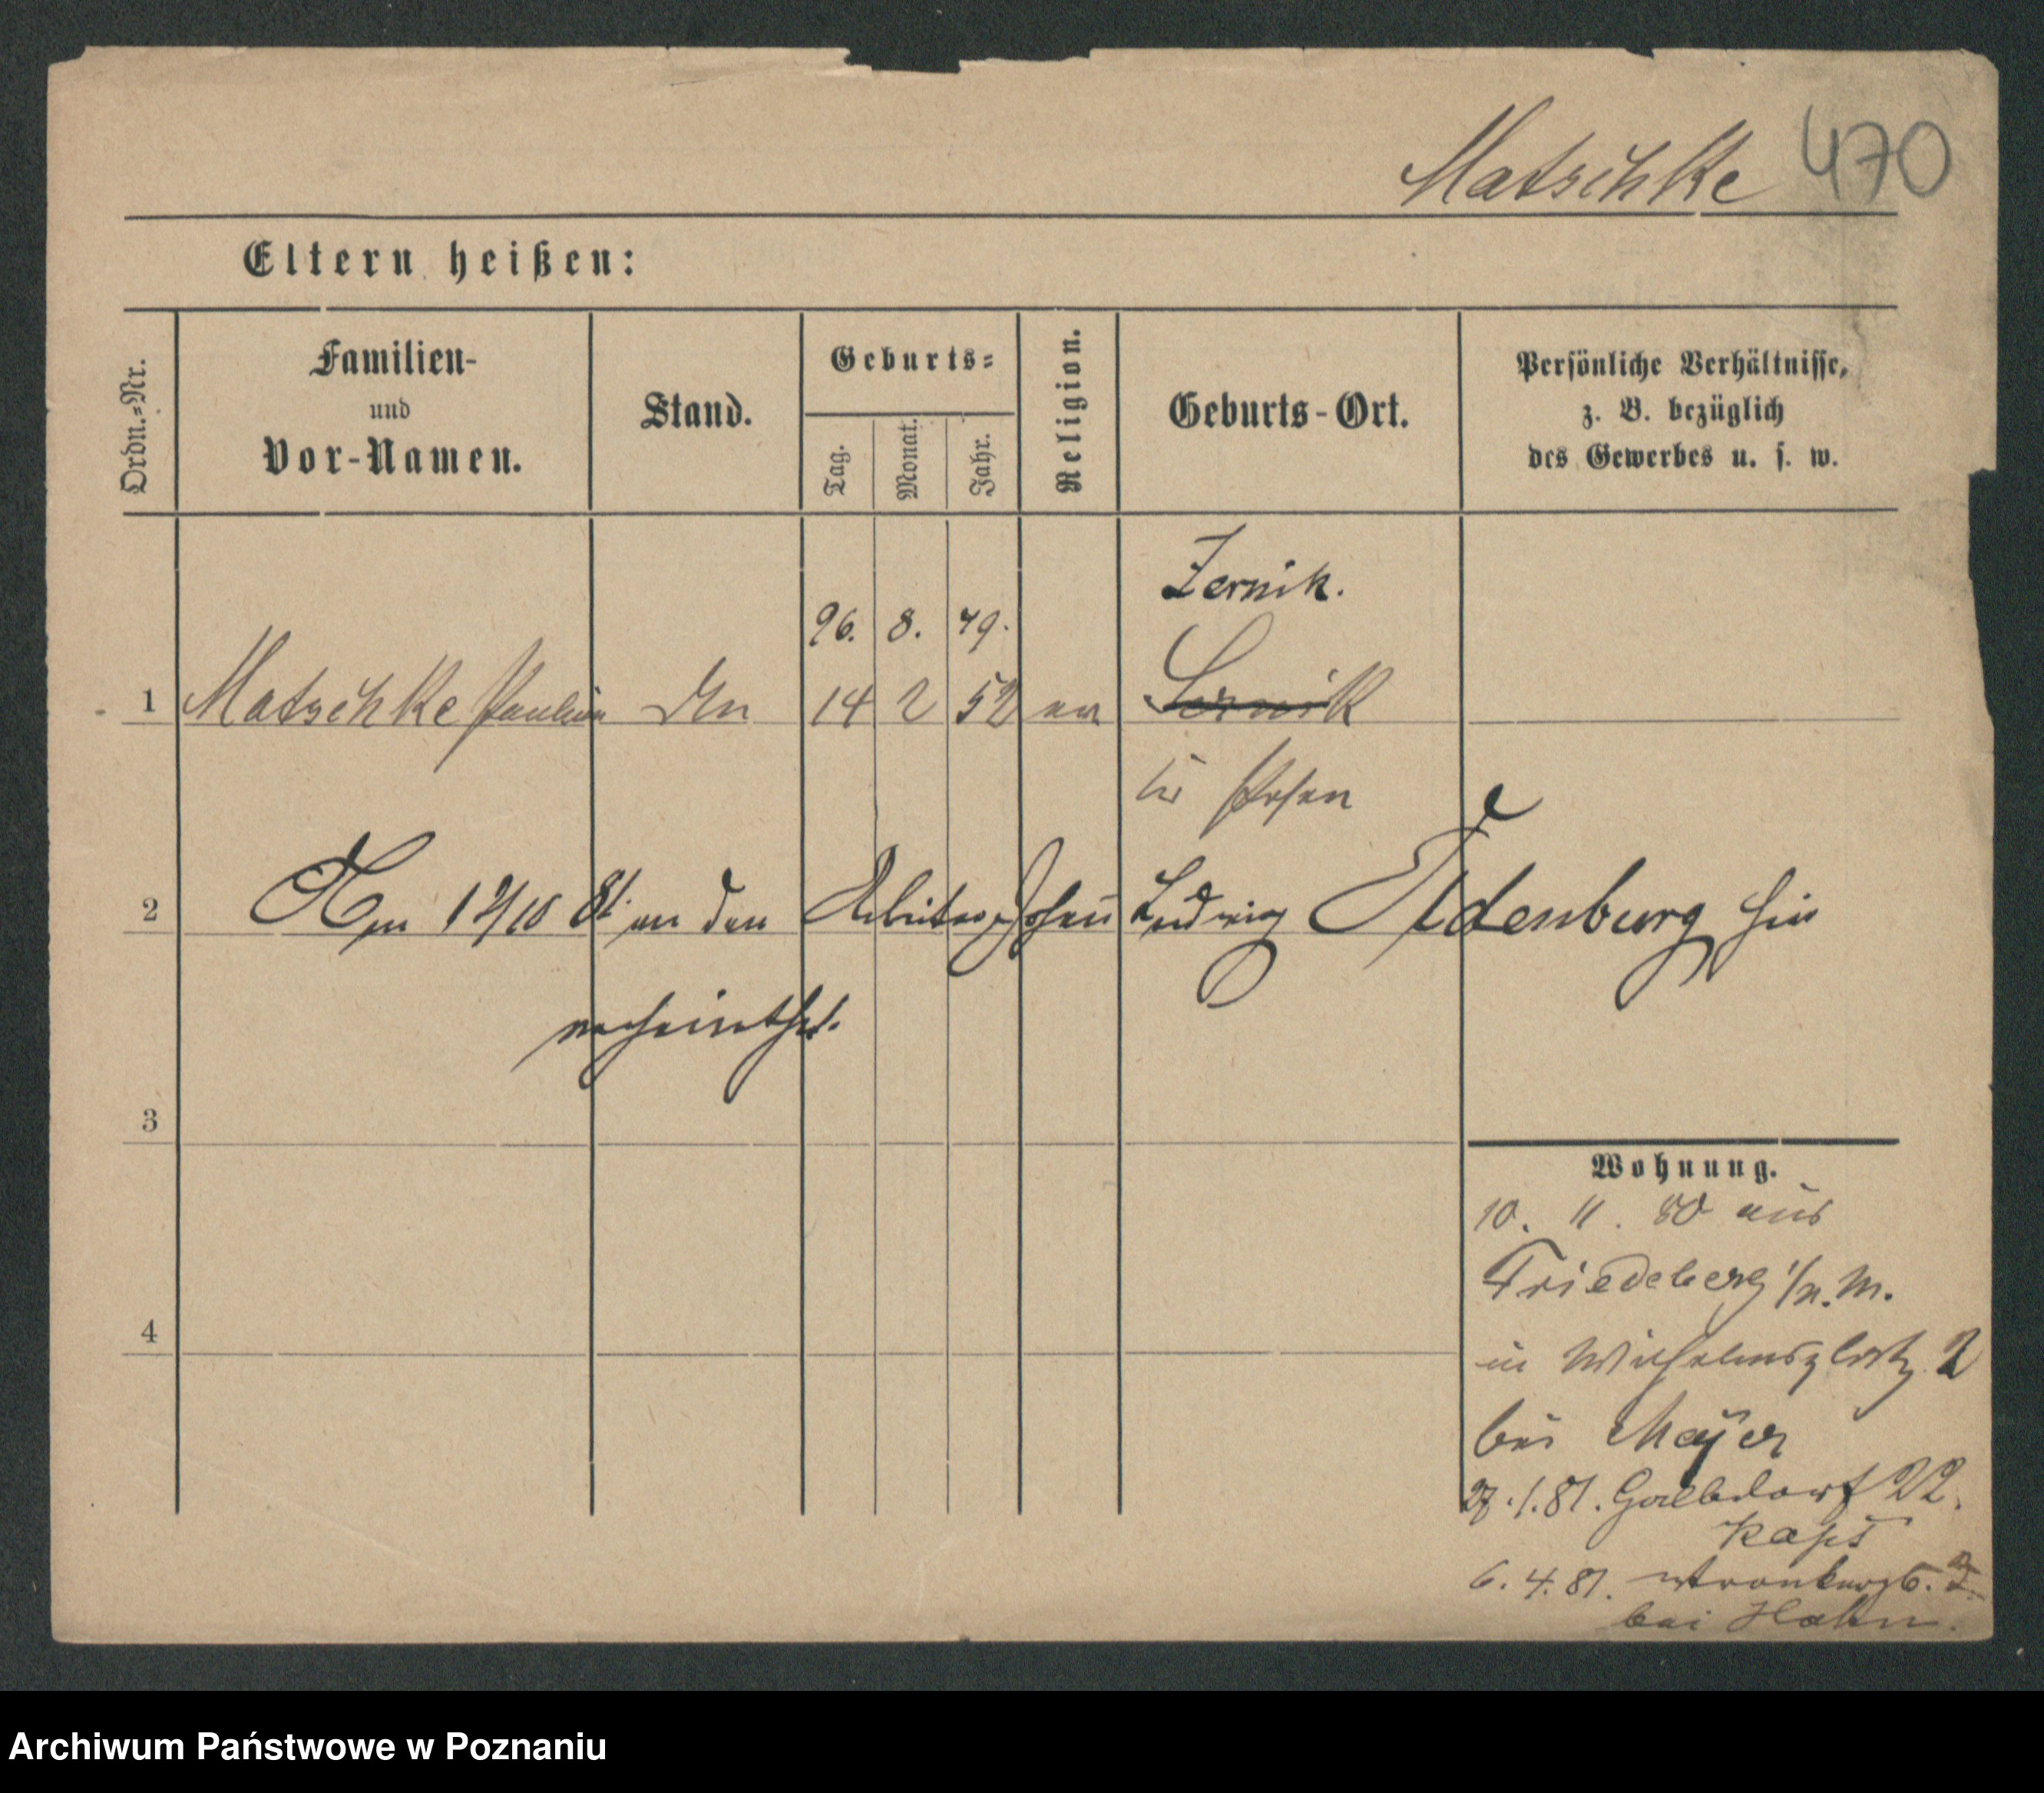 Matschke 470
Eltern heißen:
Ordn.=Nr.
Familien-
und
Vor-Namen.
Stand.
Geburts=
Tag.
Monat.
Jahr.
Religion.
Geburts-Ort.
Persönliche Verhältnisse,
z. B. bezüglich
des Gewerbes u. s. w.
Zernik.
26. 8. 49.
1 Matschke Pauline 14 2 52 ev Zernik
Kr Posen
2 Am 12/10 81. an den Arbeiter Johann Ludwig Oldenburg hier
verheirathet.
3
Wohnung.
10. 11. 80 aus
Friedeberg i/n. M.
4
in Wilhelmsplatz 2
bei Mayer
27. 1. 81. 22.
6. 4. 81.
bei Hahn.
Archiwum Państwowe w Poznaniu